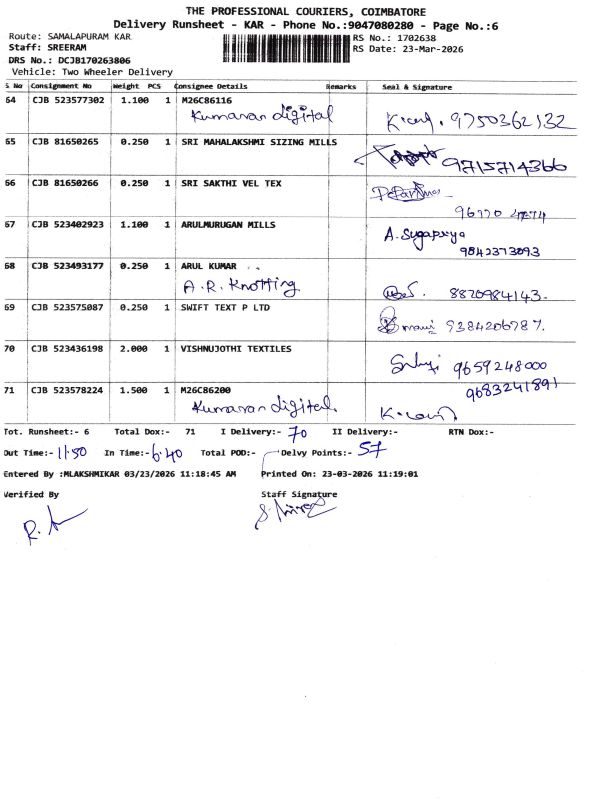 THE PROFESSIONAL COURIERS, COIMBATORE
Delivery Runsheet - KAR - Phone No.:9047080280 - Page No.:6
Route: SAMALAPURAM KAR
RS No.: 1702638
Staff: SREERAM
RS Date: 23-Mar-2026
DRS No.: DCJB170263806
Vehicle: Two Wheeler Delivery
S No Consignment No Weight PCS Consignee Details Remarks Seal & Signature
64 CJB 523577302 1.100 1 M26C86116
Kumaran digital
9750362132
65 CJB 81650265 0.250 1 SRI MAHALAKSHMI SIZING MILLS
9715714366
66 CJB 81650266 0.250 1 SRI SAKTHI VEL TEX
67 CJB 523402923 1.100 1 ARULMURUGAN MILLS
A. Sugapriya
9842373093
68 CJB 523493177 0.250 1 ARUL KUMAR
A.R. Knotting
8870984143.
69 CJB 523575087 0.250 1 SWIFT TEXT P LTD
9384206787.
70 CJB 523436198 2.000 1 VISHNUJOTHI TEXTILES
9659248000
71 CJB 523578224 1.500 1 M26C86200
9683241891
Kumaran digital.
Tot. Runsheet:- 6 Total Dox:- 71 I Delivery:- 70 II Delivery:- RTN Dox:-
Out Time:- 11:50 In Time:- 6.40 Total POD:- Delvy Points:- 57
Entered By :MLAKSHMIKAR 03/23/2026 11:18:45 AM Printed On: 23-03-2026 11:19:01
Verified By Staff Signature